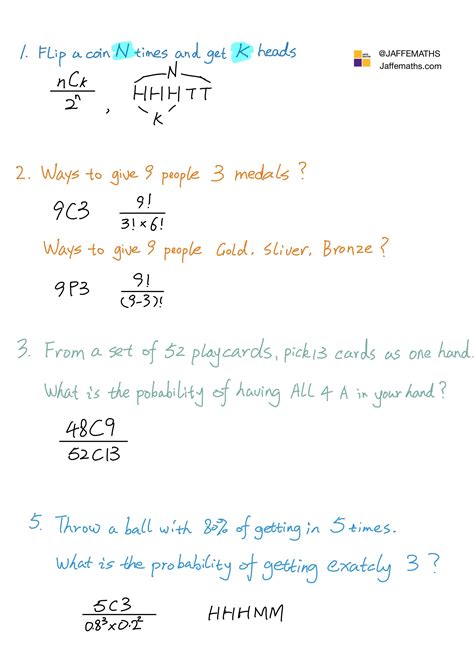 1. Flip a coin N times and get K heads
@JAFFEMATHS
Jaffemaths.com
nCk
2^n
,
N
HHHTT
K
2. Ways to give 9 people 3 medals?
9C3 9!
3! × 6!
Ways to give 9 people Gold. Sliver. Bronze?
9P3 9!
(9-3)!
3. From a set of 52 playcards, pick 13 cards as one hand.
What is the pobability of having All 4 A in your hand?
48C9
52C13
5. Throw a ball with 80% of getting in 5 times.
What is the probability of getting exatcly 3?
5C3
0.8³ × 0.2²
HHHMM